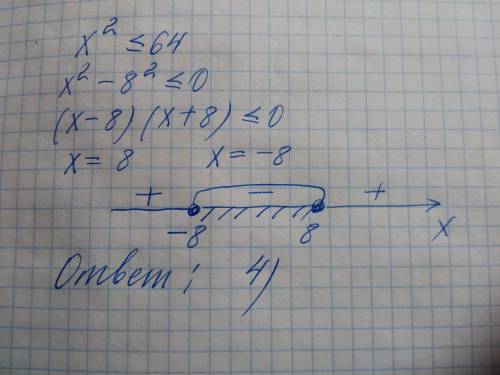 x² ≤ 64
x² - 8² ≤ 0
(x-8)(x+8) ≤ 0
x = 8 x = -8
+ - +
-8 8 x
Ответ: 4)